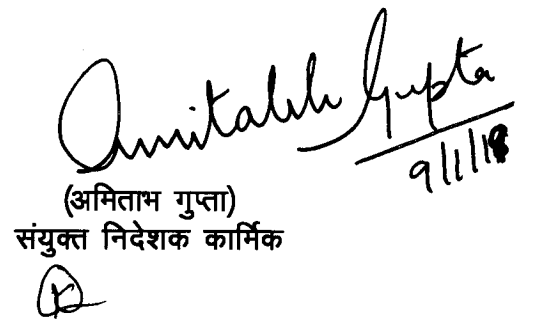 Amitabh Gupta
9/1/18
(अमिताभ गुप्ता)
संयुक्त निदेशक कार्मिक